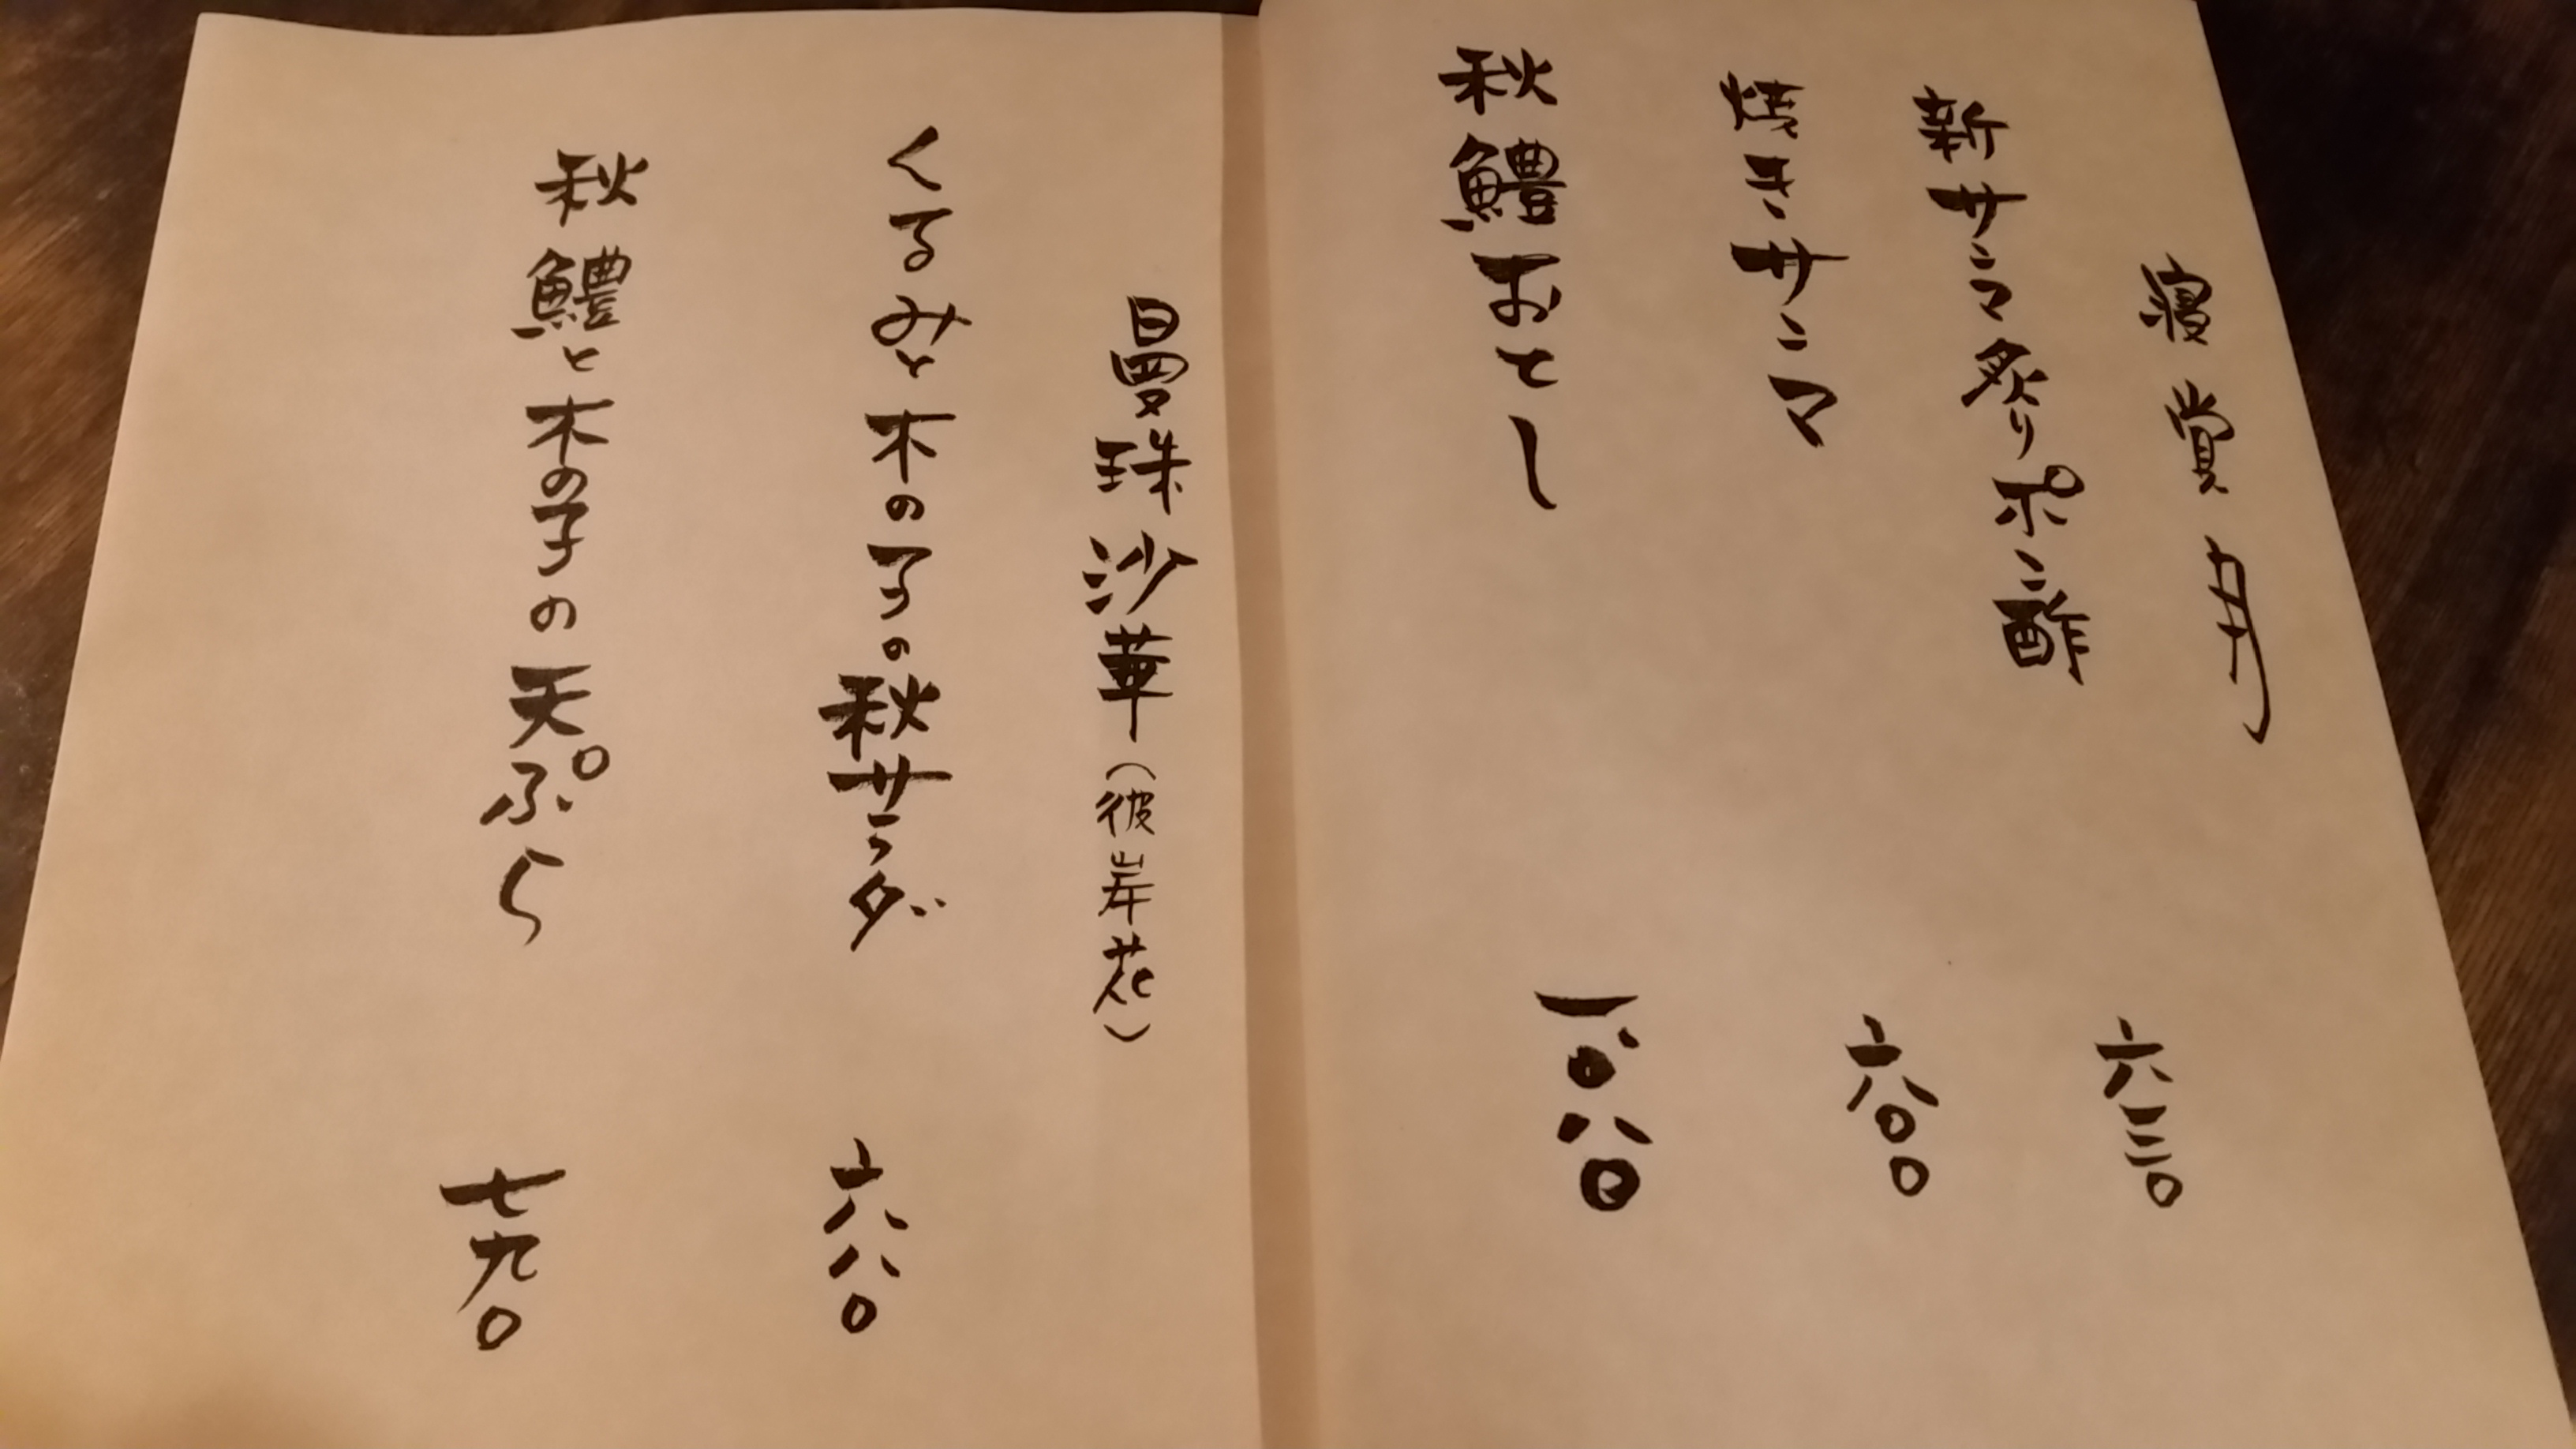 寝覚月
新サンマ炙りポン酢 六三〇
焼きサンマ 六〇〇
秋鱧おとし 一〇八〇
曼珠沙華（彼岸花）
くるみと木の子の秋サラダ 六八〇
秋鱧と木の子の天ぷら 七九〇